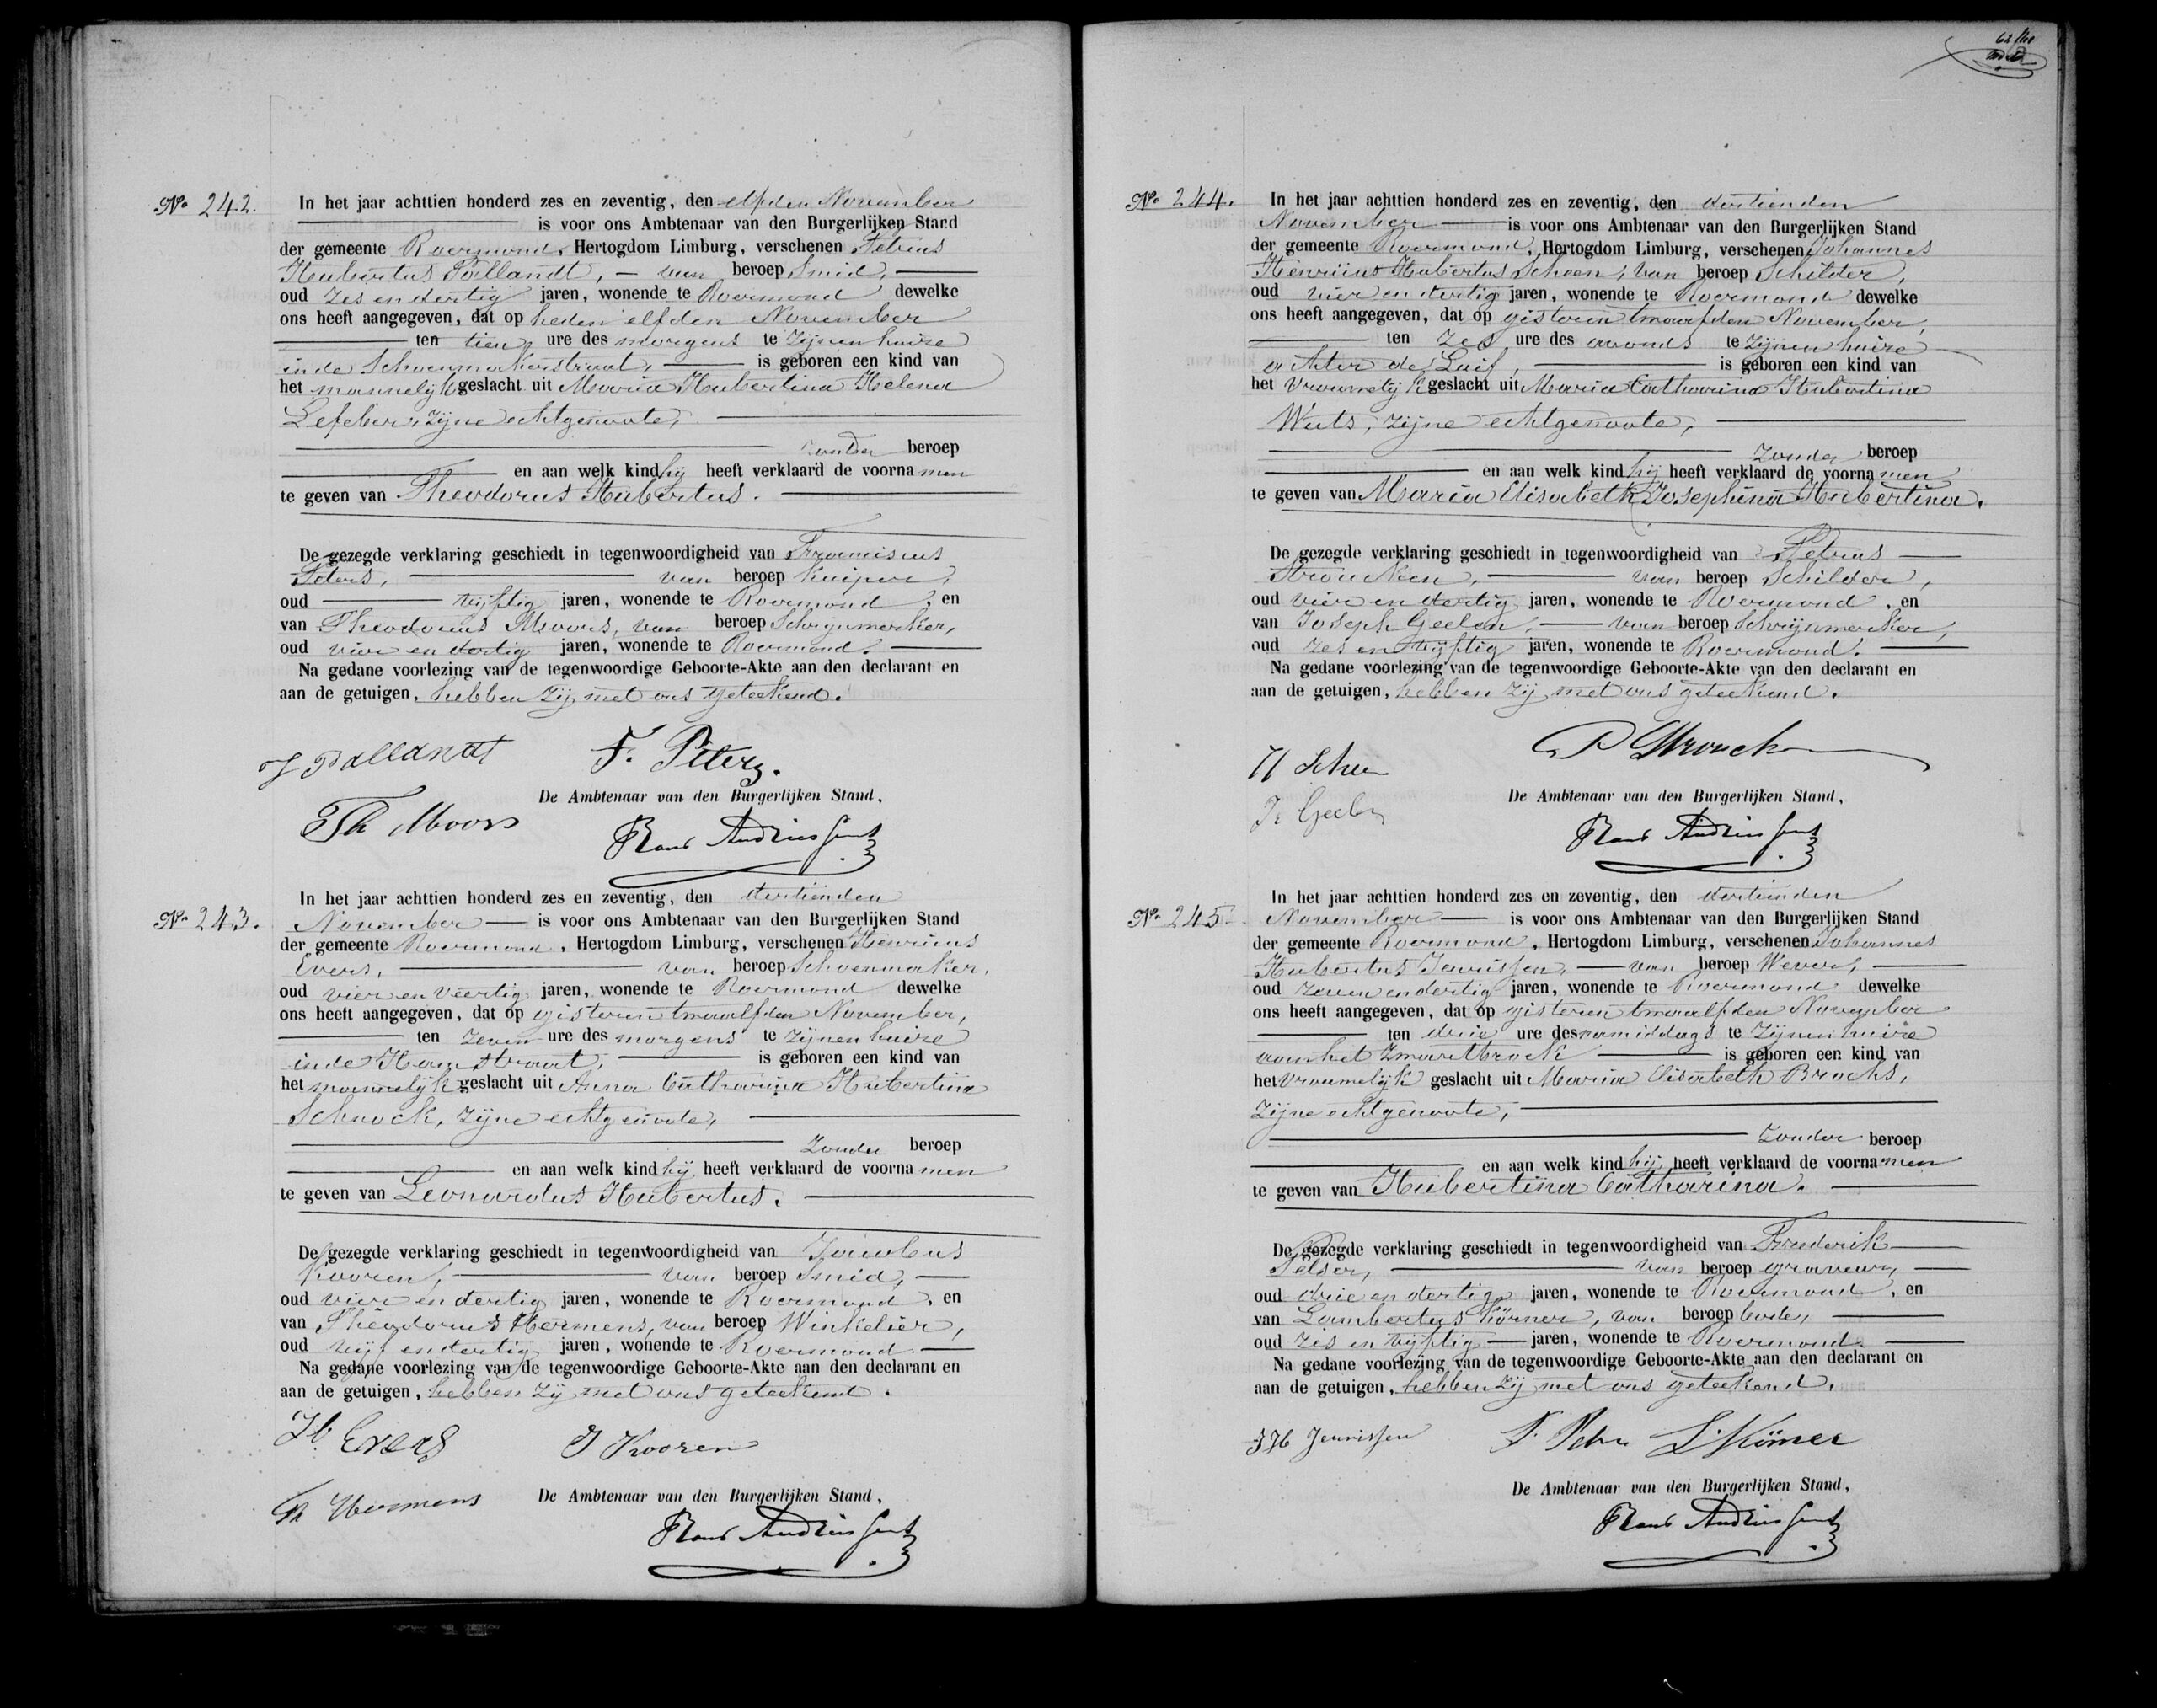 No 242. In het jaar achttien honderd zes en zeventig, den elfden November
is voor ons Ambtenaar van den Burgerlijken Stand
der gemeente Roermond, Hertogdom Limburg, verschenen Petrus
Hubertus Pallandt, van beroep Smid,
oud zes en dertig jaren, wonende te Roermond dewelke
ons heeft aangegeven, dat op heden elfden November
ten tien ure des morgens te zijnen huize
in de Schoenmakerstraat, is geboren een kind van
het mannelijk geslacht uit Maria Hubertina Helena
Lefeber, zijne echtgenoote,
zonder beroep
en aan welk kind hij heeft verklaard de voornamen
te geven van Theodorus Hubertus.
De gezegde verklaring geschiedt in tegenwoordigheid van Franciscus
Peters, van beroep kuiper,
oud vijftig jaren, wonende te Roermond, en
van Theodorus Moors, van beroep Schrijnwerker,
oud vier en dertig jaren, wonende te Roermond.
Na gedane voorlezing van de tegenwoordige Geboorte-Akte aan den declarant en
aan de getuigen, hebben zij met ons geteekend.
Pallandt F. Peters.
De Ambtenaar van den Burgerlijken Stand,
Th Moors
No 243. In het jaar achttien honderd zes en zeventig, den dertienden
November is voor ons Ambtenaar van den Burgerlijken Stand
der gemeente Roermond, Hertogdom Limburg, verschenen Henricus
Evers, van beroep Schoenmaker,
oud vier en veertig jaren, wonende te Roermond dewelke
ons heeft aangegeven, dat op gisteren twaalfden November,
ten zeven ure des morgens te zijnen huize
in de Hamstraat, is geboren een kind van
het mannelijk geslacht uit Anna Catharina Hubertina
Schnock, zijne echtgenoote,
zonder beroep
en aan welk kind hij heeft verklaard de voornamen
te geven van Leonardus Hubertus.
De gezegde verklaring geschiedt in tegenwoordigheid van Jacobus
Kooren, van beroep Smid,
oud vier en dertig jaren, wonende te Roermond, en
van Theodorus Hermens, van beroep Winkelier,
oud vijf en dertig jaren, wonende te Roermond.
Na gedane voorlezing van de tegenwoordige Geboorte-Akte aan den declarant en
aan de getuigen, hebben zij met ons geteekend.
H. Evers J Kooren
Th Hermens De Ambtenaar van den Burgerlijken Stand,
No 244. In het jaar achttien honderd zes en zeventig, den dertienden
November is voor ons Ambtenaar van den Burgerlijken Stand
der gemeente Roermond, Hertogdom Limburg, verschenen Johannes
Henricus Hubertus Scheen, van beroep Schilder,
oud vier en dertig jaren, wonende te Roermond dewelke
ons heeft aangegeven, dat op gisteren twaalfden November,
ten zes ure des avonds te zijnen huize
achter de is geboren een kind van
het vrouwelijk geslacht uit Maria Catharina Hubertina
Wuts, zijne echtgenoote,
zonder beroep
en aan welk kind hij heeft verklaard de voornamen
te geven van Maria Elisabeth Josephina Hubertina.
De gezegde verklaring geschiedt in tegenwoordigheid van Petrus
Stroucken, van beroep Schilder,
oud vier en dertig jaren, wonende te Roermond, en
van Joseph Geelen, van beroep Schrijnwerker,
oud zes en vijftig jaren, wonende te Roermond.
Na gedane voorlezing van de tegenwoordige Geboorte-Akte van den declarant en
aan de getuigen, hebben zij met ons geteekend.
H Scheen
De Ambtenaar van den Burgerlijken Stand,
No 245 In het jaar achttien honderd zes en zeventig, den dertienden
November is voor ons Ambtenaar van den Burgerlijken Stand
der gemeente Roermond, Hertogdom Limburg, verschenen Johannes
Hubertus Jeurissen, van beroep Wever,
oud zeven en dertig jaren, wonende te Roermond dewelke
ons heeft aangegeven, dat op gisteren twaalfden November
ten drie ure des namiddags te zijnen huize
aan het Zwartbroek is geboren een kind van
het vrouwelijk geslacht uit Maria Elisabeth Brocks,
zijne echtgenoote,
zonder beroep
en aan welk kind hij heeft verklaard de voornamen
te geven van Hubertina Catharina.
De gezegde verklaring geschiedt in tegenwoordigheid van Frederik
Pelser, van beroep graveur,
oud drie en dertig jaren, wonende te Roermond, en
van Lambertus Körner, van beroep bode,
oud zes en vijftig jaren, wonende te Roermond.
Na gedane voorlezing van de tegenwoordige Geboorte-Akte aan den declarant en
aan de getuigen, hebben zij met ons geteekend.
J H Jeurissen L. Körner
De Ambtenaar van den Burgerlijken Stand,